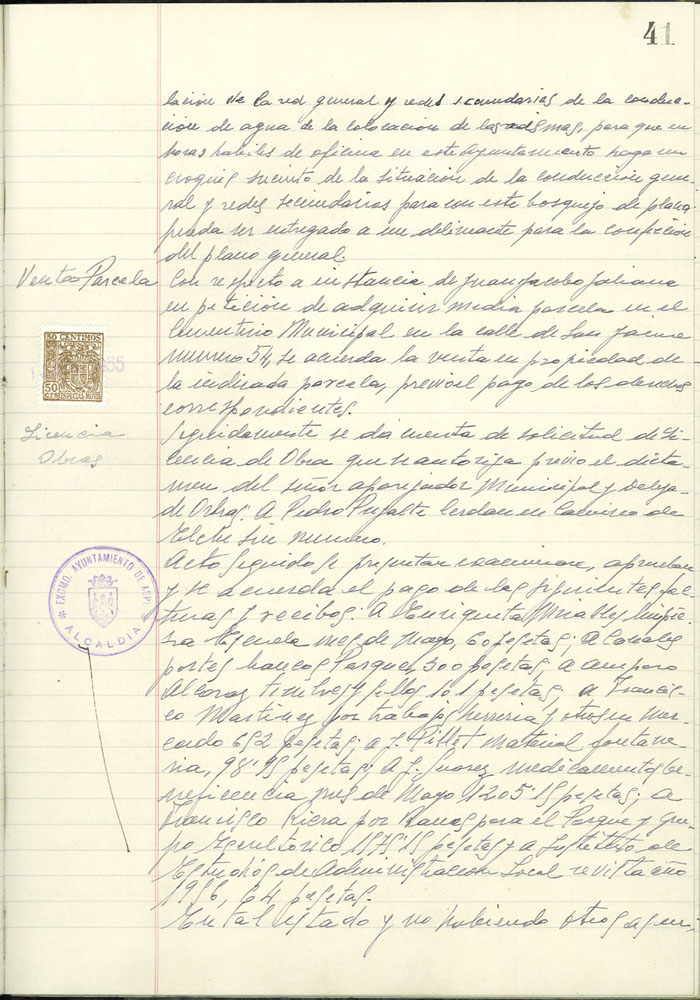 41
lación de la red general y redes secundarias de la conduc-
ción de agua de la colocación de las mismas, para que en
horas hábiles de oficina en este Ayuntamiento haga un
croquis sucinto de la situación de la conducción gene-
ral y redes secundarias para con este bosquejo de plano
pueda ser entregado a un delineante para la confección
del plano general.
Venta Parcela
Con respecto a instancia de Juan Jacobo Galiana
en petición de adquirir media parcela en el
Cementerio Municipal en la calle de San Jaime
número 54, se acuerda la venta en propiedad de
la indicada parcela, previo el pago de los derechos
correspondientes.
50 CENTIMOS
50
CTS ESPECIAL MOVIL
Licencia
Obras
Seguidamente se da cuenta de solicitud de Li-
cencia de Obra que se autoriza previo el dicta-
men del señor aparejador Municipal y
de Obras. A Pedro Pujalte Cerdan en Camino de
Elche sin número.
EXCMO. AYUNTAMIENTO DE ASPE
ALCALDIA
Acto seguido se presentan, examinan, aprueban
y se acuerda el pago de las siguientes fac-
turas y recibos: A Enriqueta Miralles limpie-
za Escuela mes de Mayo, 60 pesetas; a Canales
portes bancos Parque, 300 pesetas; a Amparo
Alcaraz timbres y sellos 101 pesetas; a Francis-
co Martinez por trabajos herreria y otros en Mer-
cado 652 pesetas; a J. material fontane-
ria, 98'95 pesetas; a J. Suarez medicamentos Be-
neficencia mes de Mayo 1205'15 pesetas; a
Francisco Riera por Bancos para el Parque y gru-
po Escultórico 1575'15 pesetas y a Instituto de
Estudios de Administracion Local revista año
1956, 64 pesetas.
En tal estado y no habiendo otros asun-